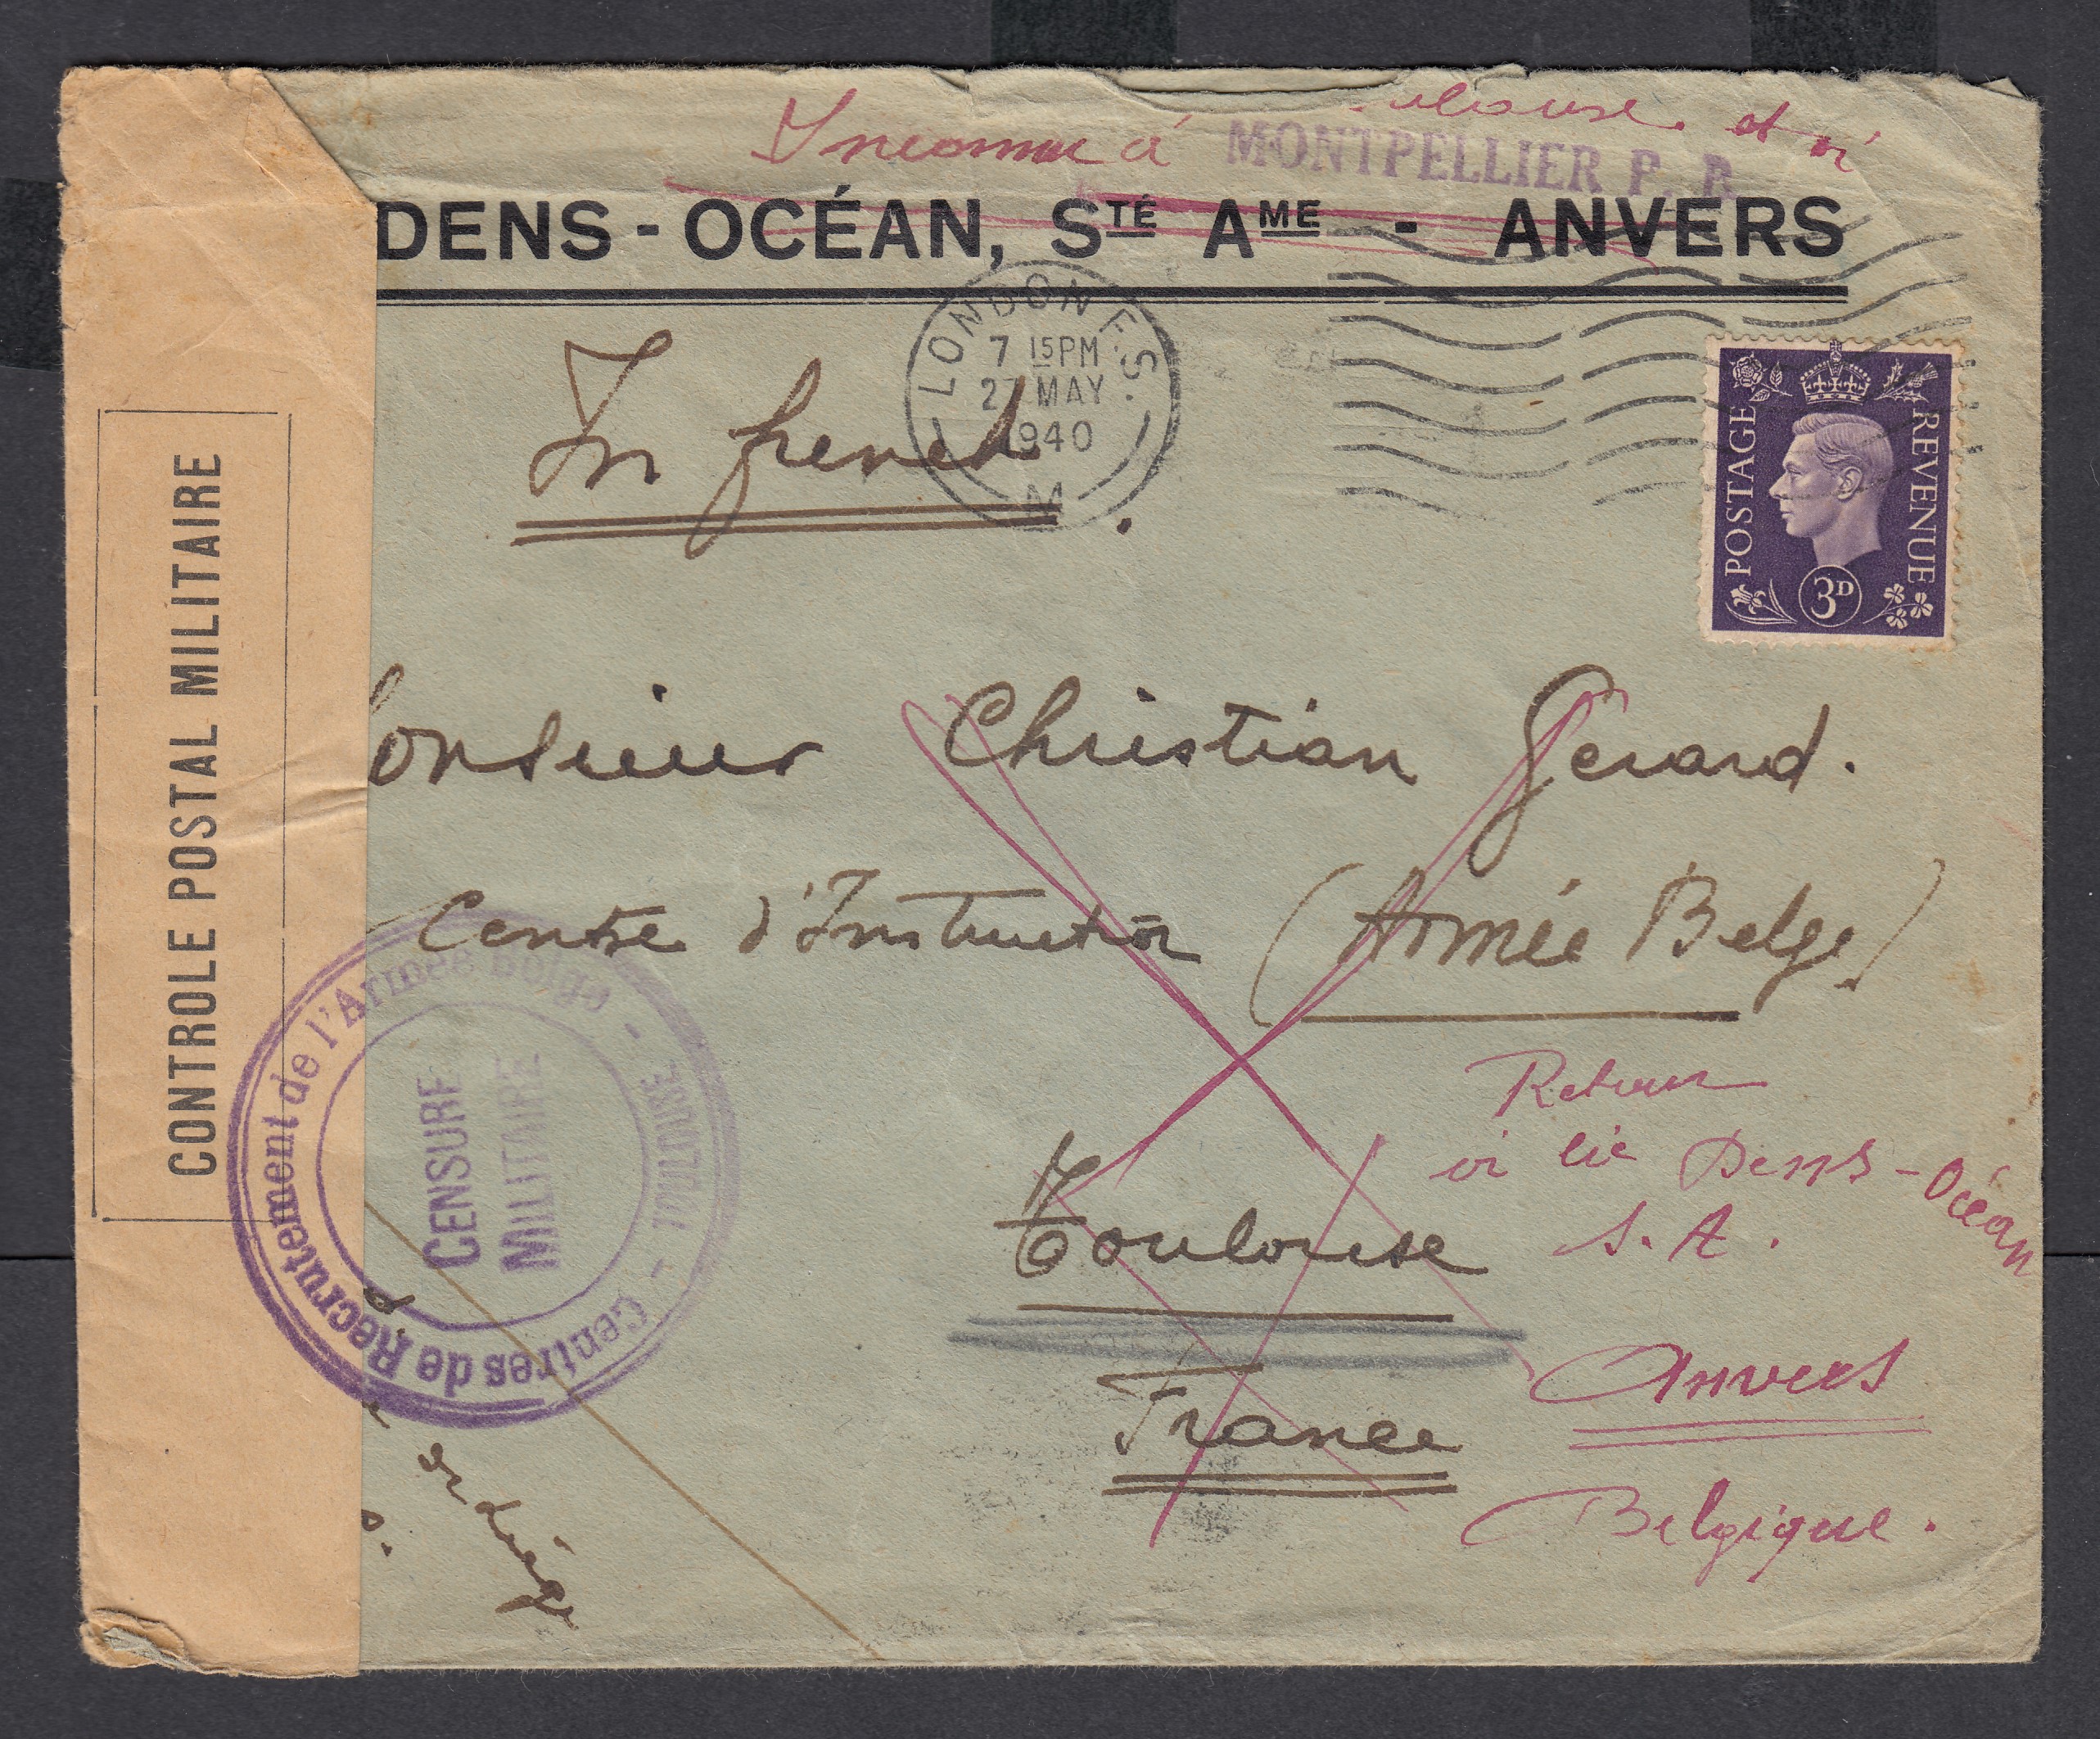 Inconnu à MONTPELLIER P. R.
et
DENS - OCÉAN, STÉ AME - ANVERS
LONDON F.S.
7 15PM
27 MAY
1940
M
In french
POSTAGE REVENUE
3D
CONTROLE POSTAL MILITAIRE
onsieur Christian Gerard.
Centre d'Instruction (Armée Belge)
Centres de Recrutement de l'Armée Belge - TOULOUSE -
CENSURE
MILITAIRE
Toulouse
France
Retour
Dens-Océan
S.A.
Anvers
Belgique.